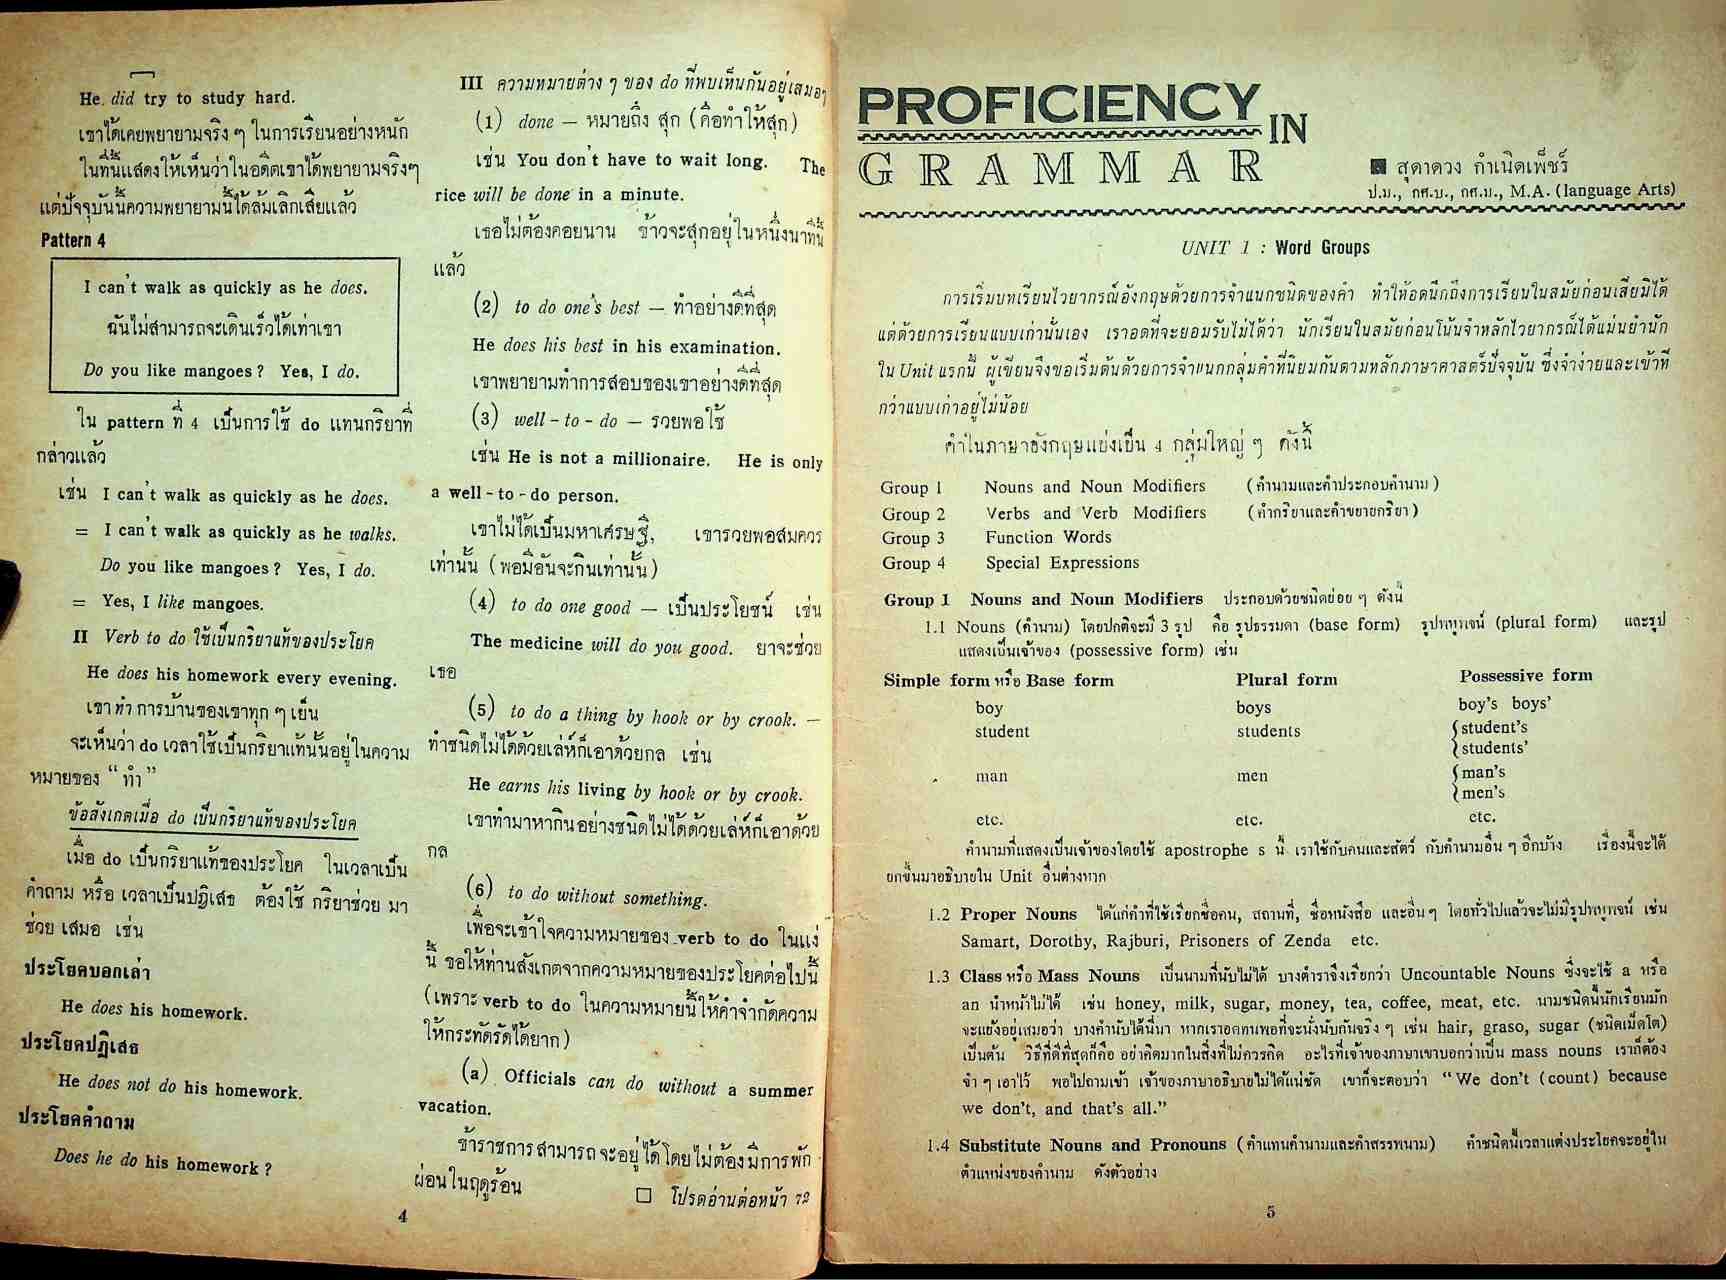 He did try to study hard.
เขาได้เคยพยายามจริง ๆ ในการเรียนอย่างหนัก
ในที่นี้แสดงให้เห็นว่าในอดีตเขาได้พยายามจริงๆ
แต่ปัจจุบันนี้ความพยายามนี้ได้ล้มเลิกเสียแล้ว
Pattern 4
I can't walk as quickly as he does.
ฉันไม่สามารถจะเดินเร็วได้เท่าเขา
Do you like mangoes ? Yes, I do.
ใน pattern ที่ 4 เป็นการใช้ do แทนกริยาที่
กล่าวแล้ว
เช่น I can't walk as quickly as he does.
= I can't walk as quickly as he walks.
Do you like mangoes ? Yes, I do.
= Yes, I like mangoes.
II Verb to do ใช้เป็นกริยาแท้ของประโยค
He does his homework every evening.
เขา ทำ การบ้านของเขาทุก ๆ เย็น
จะเห็นว่า do เวลาใช้เป็นกริยาแท้นั้นอยู่ในความ
หมายของ “ ทำ ”
ข้อสังเกตเมื่อ do เป็นกริยาแท้ของประโยค
เมื่อ do เป็นกริยาแท้ของประโยค ในเวลาเป็น
คำถาม หรือ เวลาเป็นปฏิเสธ ต้องใช้ กริยาช่วย มา
ช่วย เสมอ เช่น
ประโยคบอกเล่า
He does his homework.
ประโยคปฏิเสธ
He does not do his homework.
ประโยคคำถาม
Does he do his homework ?
III ความหมายต่าง ๆ ของ do ที่พบเห็นกันอยู่เสมอๆ
(1) done — หมายถึง สุก (คือทำให้สุก)
เช่น You don't have to wait long. The
rice will be done in a minute.
เธอไม่ต้องคอยนาน ข้าวจะสุกอยู่ในหนึ่งนาทีนี้
แล้ว
(2) to do one's best — ทำอย่างดีที่สุด
He does his best in his examination.
เขาพยายามทำการสอบของเขาอย่างดีที่สุด
(3) well - to - do — รวยพอใช้
เช่น He is not a millionaire. He is only
a well - to - do person.
เขาไม่ได้เป็นมหาเศรษฐี, เขารวยพอสมควร
เท่านั้น (พอมีอันจะกินเท่านั้น)
(4) to do one good — เป็นประโยชน์ เช่น
The medicine will do you good. ยาจะช่วย
เธอ
(5) to do a thing by hook or by crook. —
ทำชนิดไม่ได้ด้วยเล่ห์ก็เอาด้วยกล เช่น
He earns his living by hook or by crook.
เขาทำมาหากินอย่างชนิดไม่ได้ด้วยเล่ห์ก็เอาด้วย
กล
(6) to do without something.
เพื่อจะเข้าใจความหมายของ verb to do ในแง่
นี้ ขอให้ท่านสังเกตจากความหมายของประโยคต่อไปนี้
(เพราะ verb to do ในความหมายนี้ให้คำจำกัดความ
ให้กระทัดรัดได้ยาก)
(a) Officials can do without a summer
vacation.
ข้าราชการสามารถจะอยู่ได้โดยไม่ต้องมีการพัก
ผ่อนในฤดูร้อน
□ โปรดอ่านต่อหน้า 72
4
PROFICIENCY
IN
GRAMMAR
■ สุดาดวง กำเนิดเพ็ชร์
ป.ม., กศ.บ., กศ.ม., M.A. (language Arts)
UNIT 1 : Word Groups
การเริ่มบทเรียนไวยากรณ์อังกฤษด้วยการจำแนกชนิดของคำ ทำให้อดนึกถึงการเรียนในสมัยก่อนเสียมิได้
แต่ด้วยการเรียนแบบเก่านั่นเอง เราอดที่จะยอมรับไม่ได้ว่า นักเรียนในสมัยก่อนโน้นจำหลักไวยากรณ์ได้แม่นยำนัก
ใน Unit แรกนี้ ผู้เขียนจึงขอเริ่มต้นด้วยการจำแนกกลุ่มคำที่นิยมกันตามหลักภาษาศาสตร์ปัจจุบัน ซึ่งจำง่ายและเข้าที
กว่าแบบเก่าอยู่ไม่น้อย
คำในภาษาอังกฤษแบ่งเป็น 4 กลุ่มใหญ่ ๆ ดังนี้
Group 1 Nouns and Noun Modifiers (คำนามและคำประกอบคำนาม)
Group 2 Verbs and Verb Modifiers (คำกริยาและคำขยายกริยา)
Group 3 Function Words
Group 4 Special Expressions
Group 1 Nouns and Noun Modifiers ประกอบด้วยชนิดย่อย ๆ ดังนี้
1.1 Nouns (คำนาม) โดยปกติจะมี 3 รูป คือ รูปธรรมดา (base form) รูปพหูพจน์ (plural form) และรูป
แสดงเป็นเจ้าของ (possessive form) เช่น
Simple form หรือ Base form Plural form Possessive form
boy boys boy's boys'
student students student's
students'
man men man's
men's
etc. etc. etc.
คำนามที่แสดงเป็นเจ้าของโดยใช้ apostrophe s นี้ เราใช้กับคนและสัตว์ กับคำนามอื่น ๆ อีกบ้าง เรื่องนี้จะได้
ยกขึ้นมาอธิบายใน Unit อื่นต่างหาก
1.2 Proper Nouns ได้แก่คำที่ใช้เรียกชื่อคน, สถานที่, ชื่อหนังสือ และอื่น ๆ โดยทั่วไปแล้วจะไม่มีรูปพหูพจน์ เช่น
Samart, Dorothy, Rajburi, Prisoners of Zenda etc.
1.3 Class หรือ Mass Nouns เป็นนามที่นับไม่ได้ บางตำราจึงเรียกว่า Uncountable Nouns ซึ่งจะใช้ a หรือ
an นำหน้าไม่ได้ เช่น honey, milk, sugar, money, tea, coffee, meat, etc. นามชนิดนี้นักเรียนมัก
จะแย้งอยู่เสมอว่า บางคำนับได้นี่นา หากเราอดทนพอที่จะนั่งนับกันจริง ๆ เช่น hair, graso, sugar (ชนิดเม็ดโต)
เป็นต้น วิธีที่ดีที่สุดก็คือ อย่าคิดมากในสิ่งที่ไม่ควรคิด อะไรที่เจ้าของภาษาเขาบอกว่าเป็น mass nouns เราก็ต้อง
จำ ๆ เอาไว้ พอไปถามเข้า เจ้าของภาษาอธิบายไม่ได้แน่ชัด เขาก็จะตอบว่า “We don't (count) because
we don't, and that's all.”
1.4 Substitute Nouns and Pronouns (คำแทนคำนามและคำสรรพนาม) คำชนิดนี้เวลาแต่งประโยคจะอยู่ใน
ตำแหน่งของคำนาม ดังตัวอย่าง
5